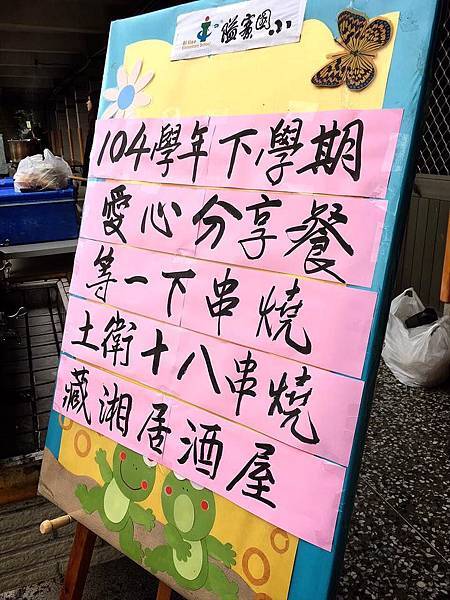 Bi Liao
Elementary School
隘寮國小
104學年下學期
愛心分享餐
等一下串燒
土衛十八串燒
藏湘居酒屋